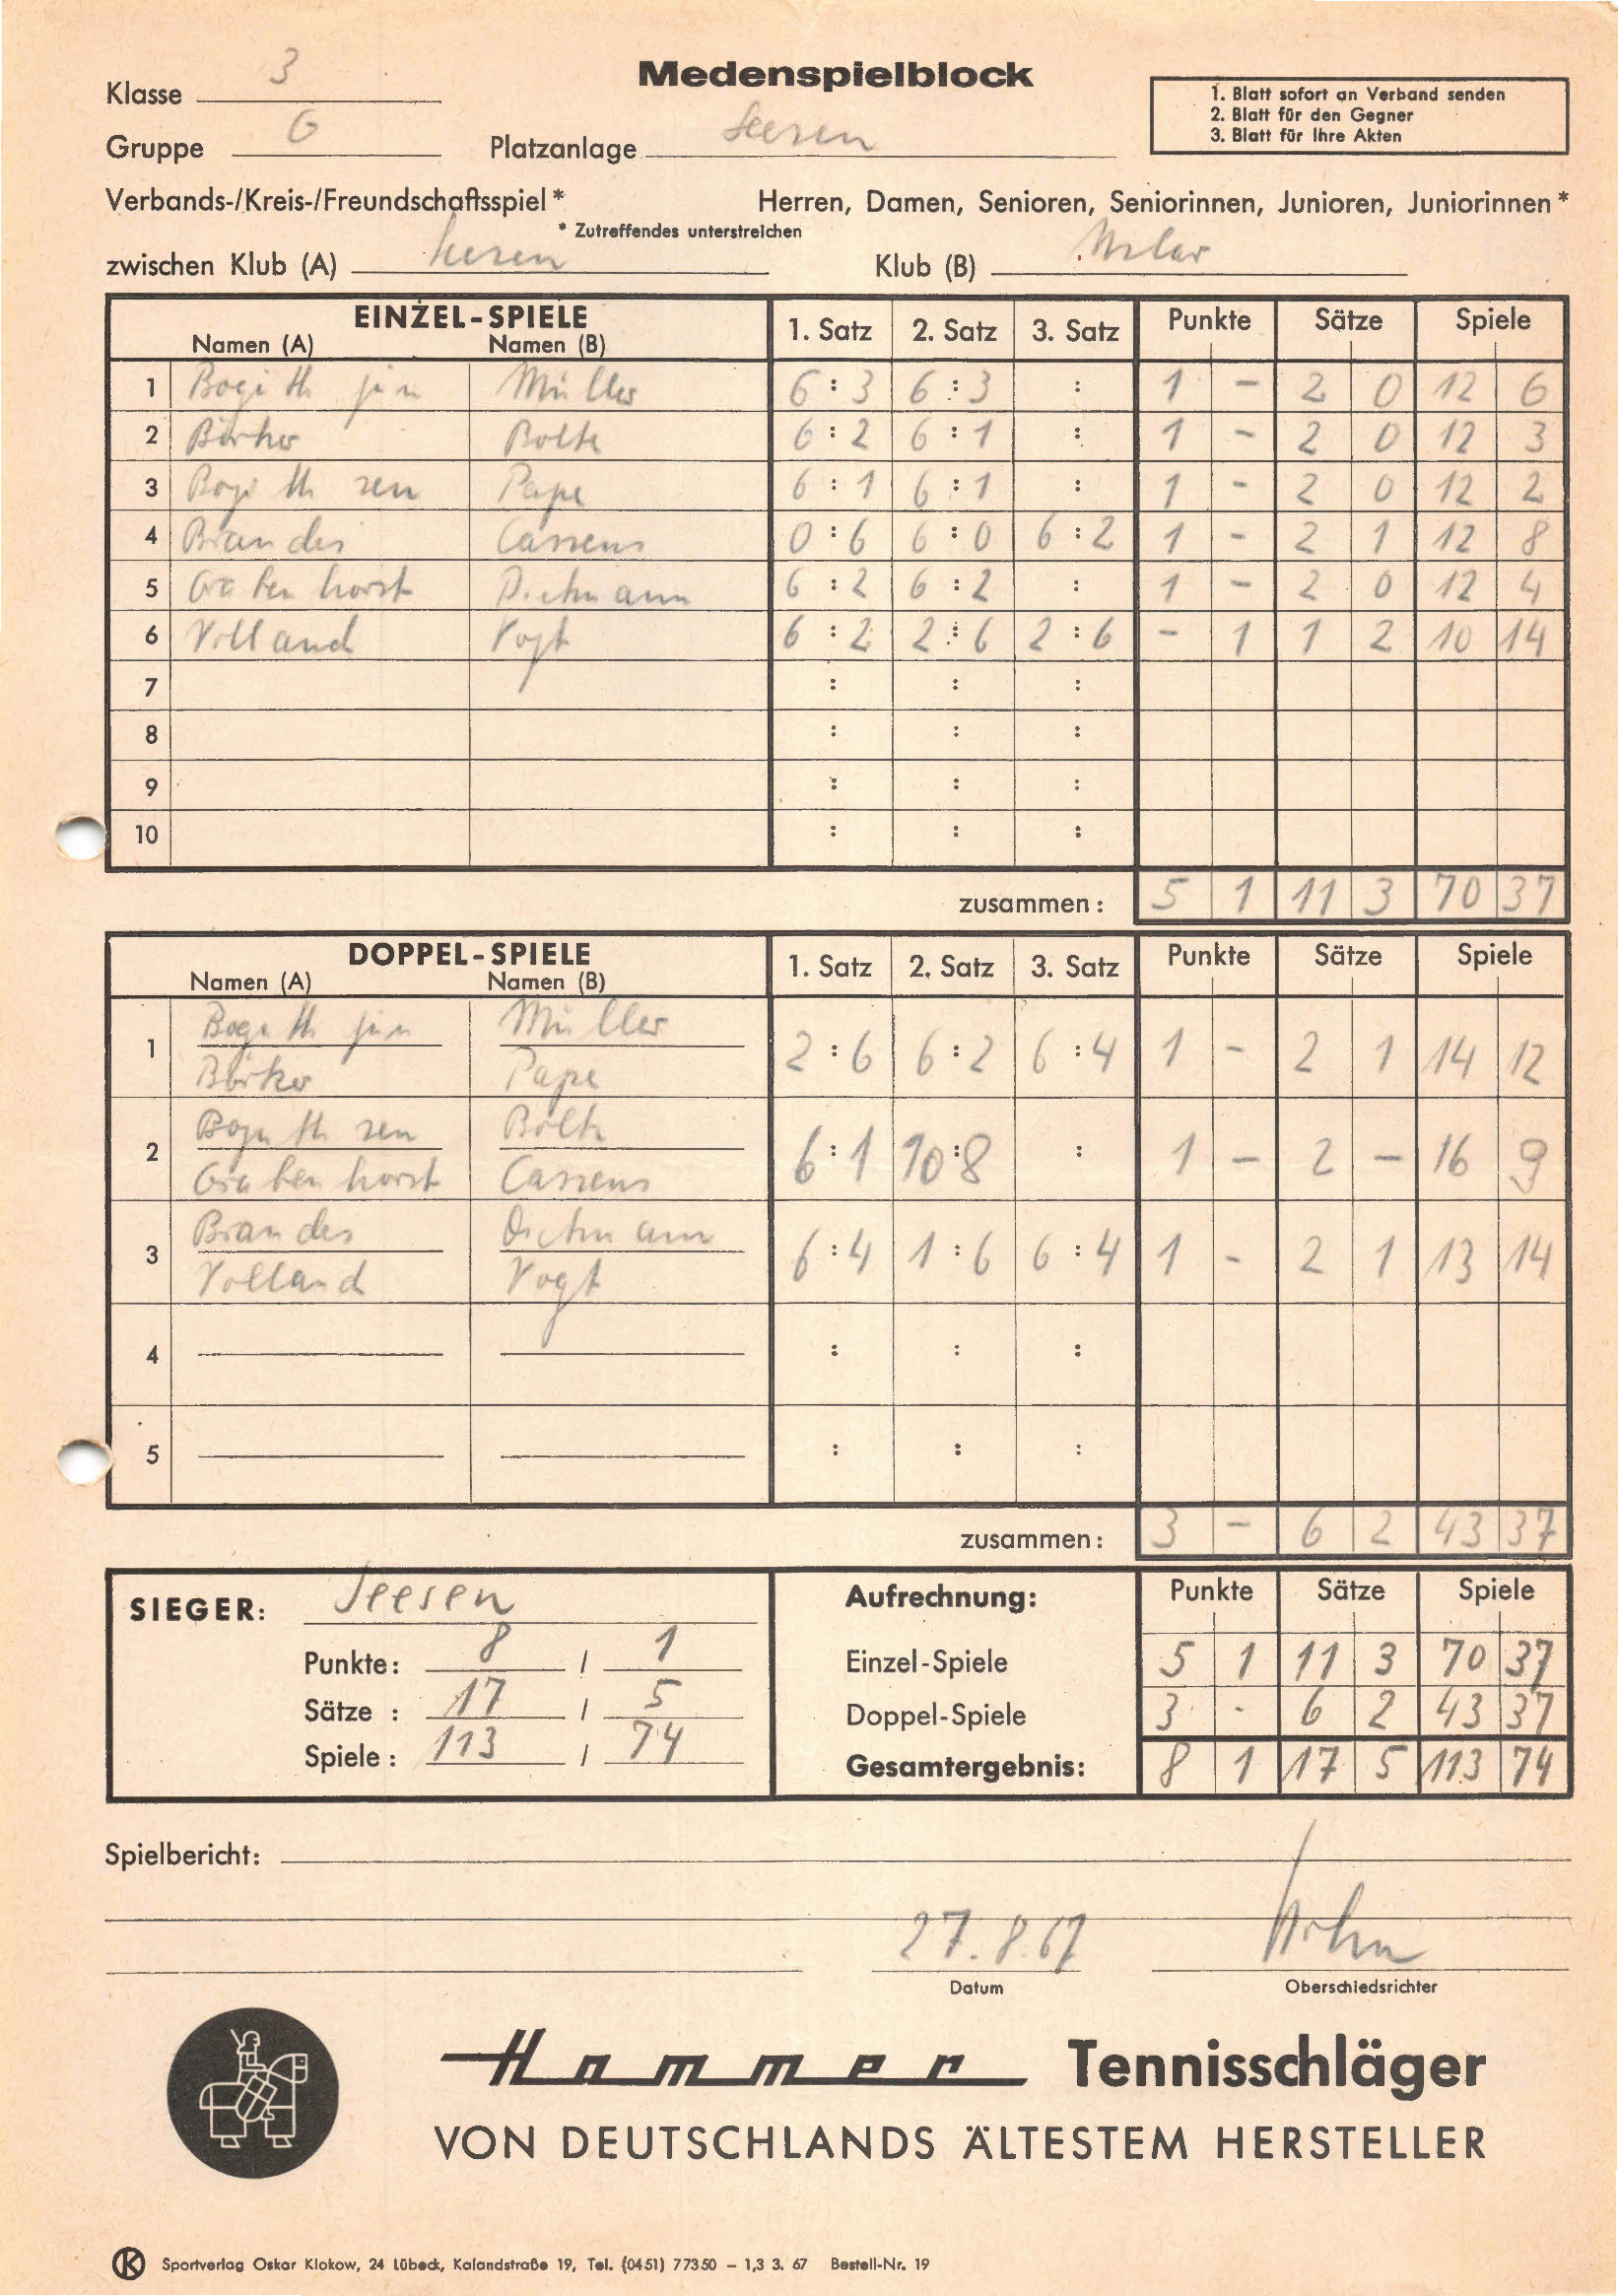 Medenspielblock
Klasse 3
1. Blatt sofort an Verband senden
2. Blatt für den Gegner
3. Blatt für Ihre Akten
Gruppe G Platzanlage Seesen
Verbands-/Kreis-/Freundschaftsspiel * Herren, Damen, Senioren, Seniorinnen, Junioren, Juniorinnen *
* Zutreffendes unterstreichen
zwischen Klub (A) Seesen Klub (B) Uslar
EINZEL-SPIELE 1. Satz 2. Satz 3. Satz Punkte Sätze Spiele
Namen (A) Namen (B)
1 jun Müller 6 : 3 6 : 3 : 1 - 2 0 12 6
2 Bolte 6 : 2 6 : 1 : 1 - 2 0 12 3
3 sen Pape 6 : 1 6 : 1 : 1 - 2 0 12 2
4 Brandes Cassens 0 : 6 6 : 0 6 : 2 1 - 2 1 12 8
5 Grabenhorst 6 : 2 6 : 2 : 1 - 2 0 12 4
6 Volland Vogt 6 : 2 2 : 6 2 : 6 - 1 1 2 10 14
7 : : :
8 : : :
9 : : :
10 : : :
zusammen: 5 1 11 3 70 37
DOPPEL-SPIELE 1. Satz 2. Satz 3. Satz Punkte Sätze Spiele
Namen (A) Namen (B)
jun Müller
1 2 : 6 6 : 2 6 : 4 1 - 2 1 14 12
Pape
sen Bolte
2 6 : 1 10 : 8 : 1 - 2 - 16 9
Grabenhorst Cassens
Brandes
3 6 : 4 1 : 6 6 : 4 1 - 2 1 13 14
Volland Vogt
4 : : :
5 : : :
zusammen: 3 - 6 2 43 37
SIEGER: Seesen
Punkte: 8 / 1
Sätze : 17 / 5
Spiele : 113 / 74
Aufrechnung: Punkte Sätze Spiele
Einzel-Spiele 5 1 11 3 70 37
Doppel-Spiele 3 - 6 2 43 37
Gesamtergebnis: 8 1 17 5 113 74
Spielbericht:
27.8.67
Datum Oberschiedsrichter
Hammer Tennisschläger
VON DEUTSCHLANDS ÄLTESTEM HERSTELLER
K Sportverlag Oskar Klokow, 24 Lübeck, Kalandstraße 19, Tel. (0451) 77350 – 1,3 3. 67 Bestell-Nr. 19